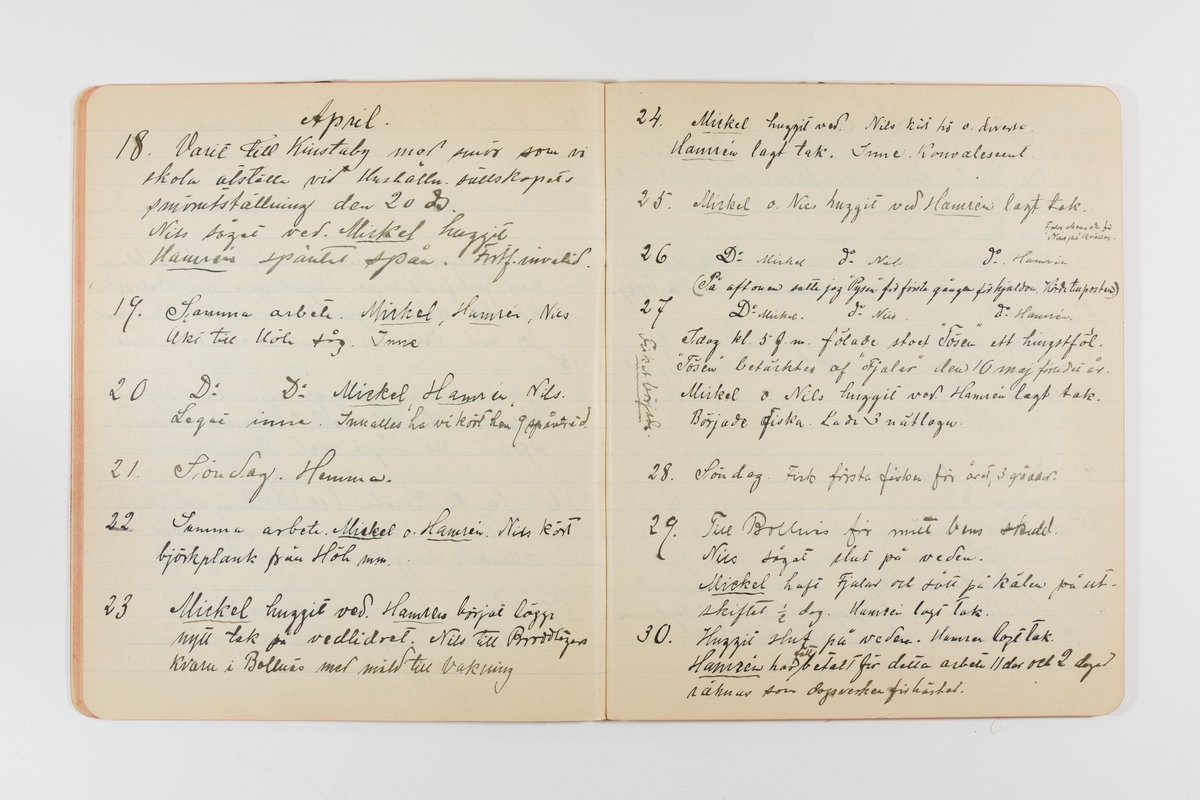 April.
18. Varit till Kinstaby med smör som vi
skola utställa vid Hushålln. sällskapets
smörutställning den 20 ds.
Nils såget ved. Mickel huggit
Hamrén spåntat spån. Fortf. invalid.
19. Samma arbete. Mickel, Hamrén, Nils
åkt till Höh såg. Inne
20 Do Do Mickel, Hamrén, Nils.
Legat inne. Inalles ha vi kört hem 9 spånträd
21. Söndag. Hemma.
22 Samma arbete. Mickel o. Hamrén. Nils kört
björkplank från Höh mm.
23 Mickel huggit ved. Hamrén börjat lägga
nytt tak på vedlidret. Nils till
kvarn i Bollnäs med mäld till bakning
24. Mickel huggit ved. Nils kört hö o. diverse.
Hamrén lagt tak. Inne. Konvalescent.
25. Mickel o. Nils huggit ved. Hamrén lagt tak.
26 Do Mickel do Nils do Hamrén
(På aftonen satte jag Pysen för första gången för skjuldon. Körde till posten)
27 Do Mickel. do Nils. do Hamrén.
Idag kl. 5 f.m. fölade stoet "Tösen" ett hingstföl.
"Tösen" betäcktes af "Fjalar" den 16 maj förledet år.
Mickel o. Nils huggit ved. Hamrén lagt tak.
Började fiska. Lade 3 nätlagn.
Fisket började.
28. Söndag. Fick första fisken för året, 3 gäddor.
29. Till Bollnäs för mitt bens skull.
Nils såget slut på veden.
Mickel haft Fjalar och sått på kälen på ut-
skiftet ½ dag. Hamrén lagt tak.
30. Huggit slut på veden. Hamrén lagt tak.
Hamrén har fått betalt för detta arbete 11 dar och 2 dagar
räknas som dagsverken för hästed.